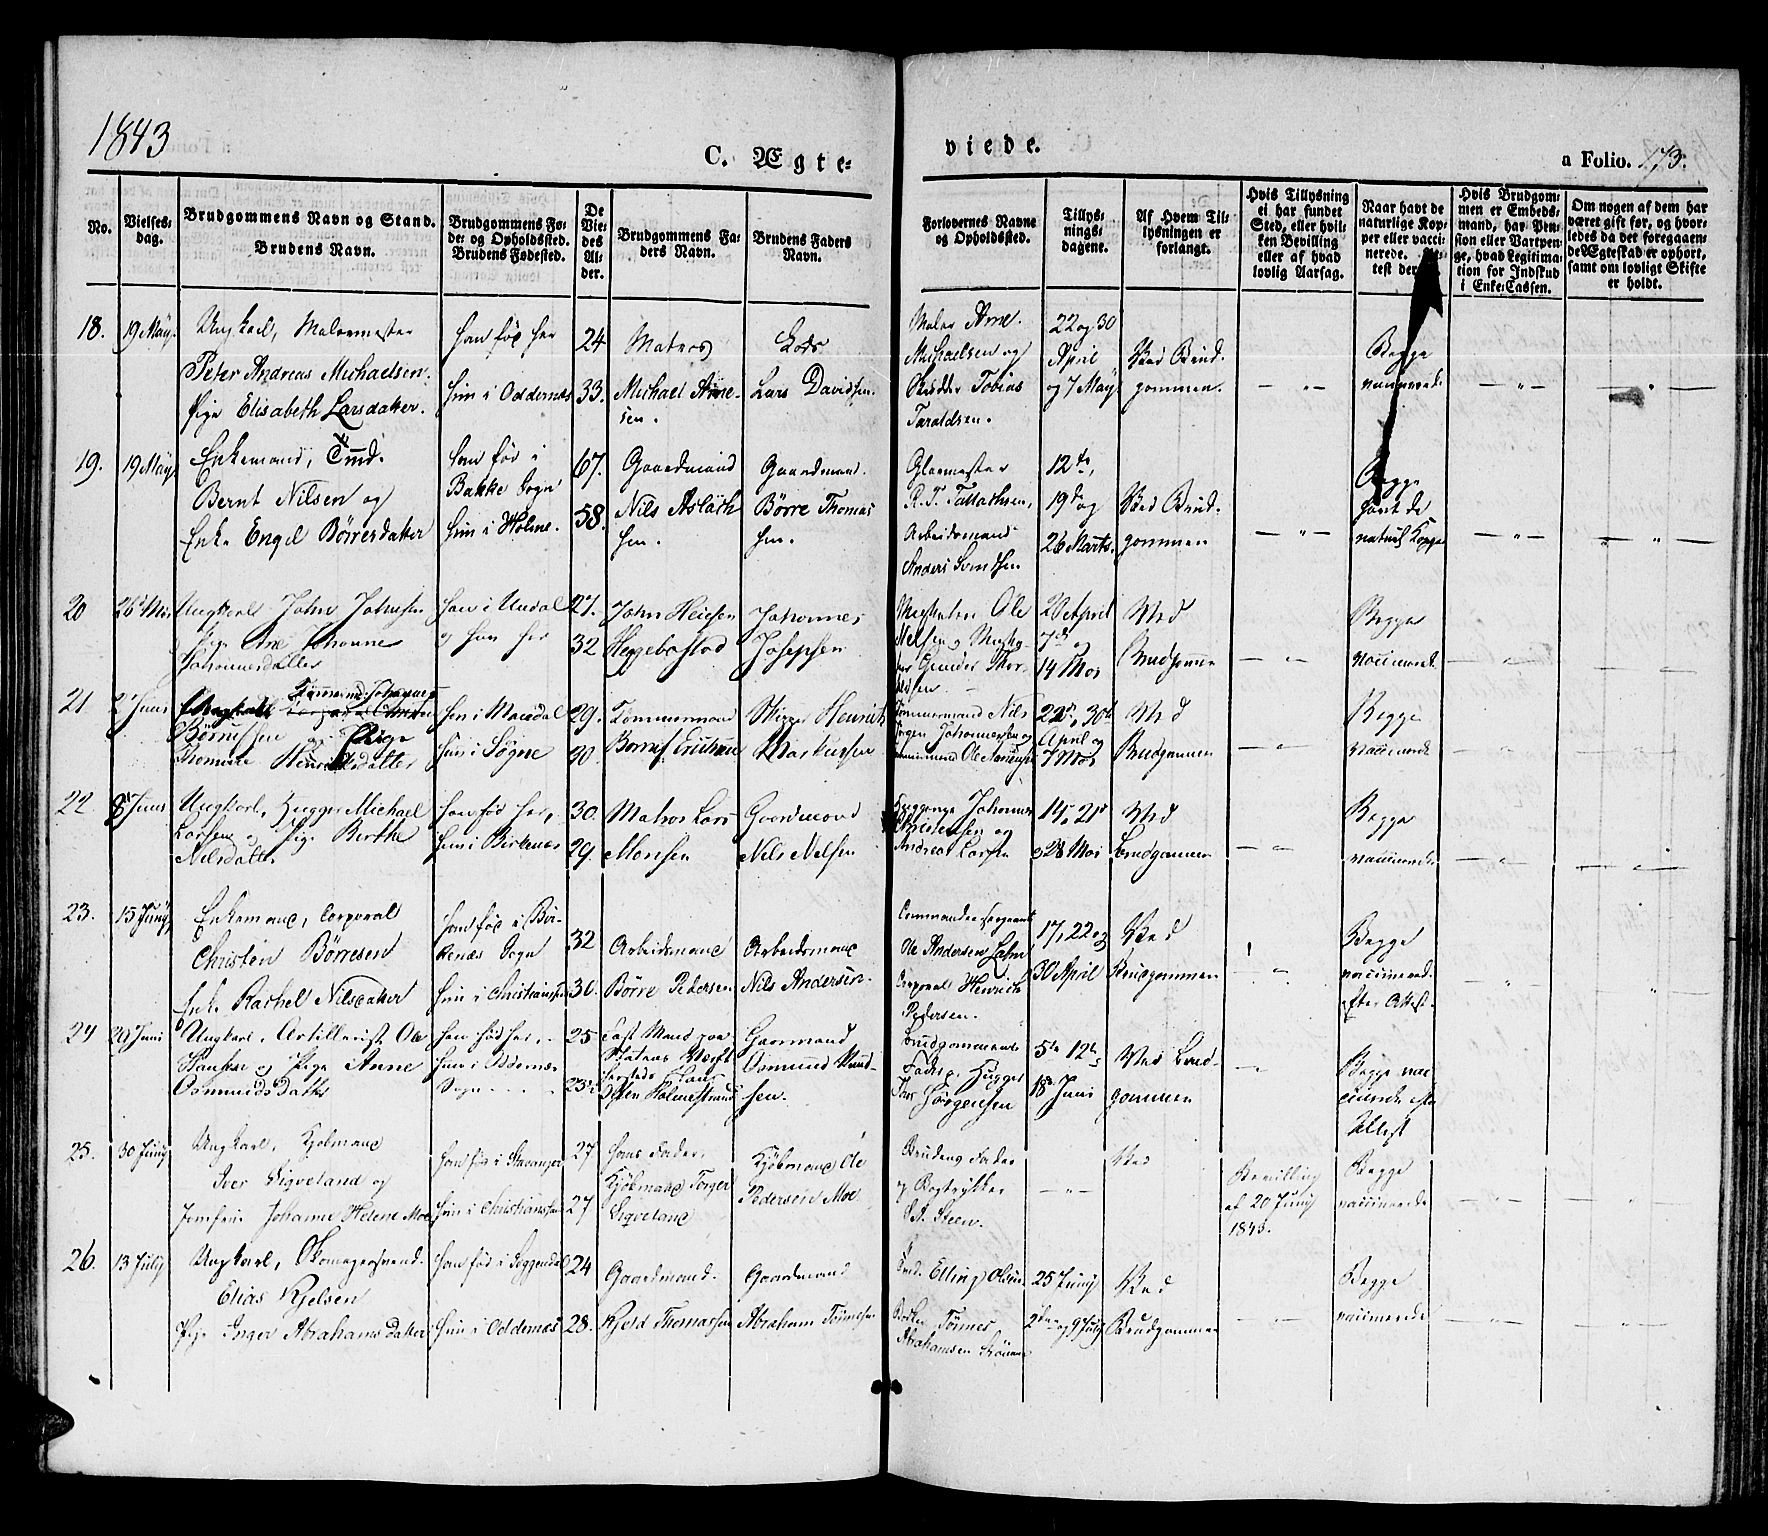 1843
C. Ægte-
viede.
a Folio. 173.
No.
Vielses-
dag.
Brudgommens Navn og Stand.
Brudens Navn.
Brudgommens Fø-
de- og Opholdssted.
Brudens Fødested.
De
Vie-
des
Al-
der.
Brudgommens Fa-
ders Navn.
Brudens Faders
Navn.
Forlovernes Navne
og Opholdssted.
Tillys-
nings-
dagene.
Af Hvem Til-
lysningen er
forlangt.
Hvis Tillysning
ei har fundet
Sted, eller hvil-
ken Bevilling
eller af hvad
lovlig Aarsag.
Naar havt de
naturlige Kop-
per eller vacci-
nerede.
Hvis Brudgom-
men er Embeds-
mand, har Pen-
sion eller Vartpen-
ge, hvad Legitima-
tion for Indskud
i Enke-Cassen.
Om nogen af dem har
været gift før, og hvor-
ledes da det foregaaen-
de Ægteskab er ophørt,
samt om lovligt Skifte
er holdt.
18. 19 May. Ungkarl, Malermester
Peter Andreas Michaelsen.
Pige Elisabeth Larsdatter.
han fød her
hun i Oddernæs
24
33.
Matros
Michael Arne-
sen.
Lods
Lars Davidsen.
Maler Arne
Michaelsen og
Tobias
Taraldsen.
22 og 30
April
og 7 May
Ved Brud-
gommen.
— " —
Begge
vaccinerede
— " —
— " —
19. 19 May Enkemand,
Bernt Nilsen og
Enke Engel Börresdatter
han fød i
Bakke Sogn
hun i Holme.
67.
58.
Gaardmand
Nils Aslach-
sen.
Gaardmand.
Börre Thomas-
sen.
Glarmester
Arbeidsmand
Anders Svendsen
12te,
19de og
26 Marts.
Ved Brud-
gommen
— " —
Begge
havt de
naturl Kopper
— " —
" " —
20 26 Mai Ungkarl John Johnsen
Pige Ane Johanne
Johannesdatter
han i Undal
og hun her
27.
32
John
Heggebostad
Johannes
Josephsen
Ole
Nilsen og
Gunder Thor-
20 April
7de og
14 Mai
Ved
Brudgommen
— " —
Begge
vaccinerede
— " —
— " —
21 2 Juni Ungkarl Tømmermd Johannes
Børresen og Pige
Henriksdatter
han i Mandal
hun i Søgne
29.
30.
Tømmermand
Henrik
Markussen
Tømmermand Nils
Jørgen Johannessen og
Tømmermand Ole
22de, 30te
April og
7 Mai
Ved
Brudgommen
— " —
Begge
vaccinerede
22 8 Juni Ungkarl, Hugger Michael
Larsen og Pige Berthe
Nilsdatter
han fød her,
hun i Birkenæs
30.
29.
Matros Lars
Monsen
Gaardmand
Nils Nelsen
Johannes
Christensen og
Andreas Larsen
14, 21 og
28 Mai
Ved
Brudgommen
— " —
Begge
vaccinerede
— " —
23. 15 Juny Enkemand, Corporal
Christen Börresen
Enke Rachel Nilsdatter
han fød i Bir-
kenæs Sogn
hun i Christianssand
32
30.
Arbeidsmand
Börre Pedersen
Arbeidsmand
Nils Andersen.
Commandeersergeant
Ole Andersen
Corporal Heinrich
Pedersen.
17, 22 og
30 April
Ved
Brudgommen
— " —
Begge
vaccinered.
efter Attest.
24 29 Juni Ungkarl, Artillerist Ole
og Pige Anne
Osmunds Datter
han født her,
hun i Oddernæs
Sogn
25
23
Fast Mand paa
Statens Værft
Holmestrand
Gaarmand
Osmund Knud-
sen.
Brudgommens
Fader og Hugger
Jørgensen
5te 12te
18 Juni
Ved Brud-
gommen
—
Begge vac-
cinerede efter
Attest
25. 30 Juny Ungkarl, Kjöbmand
Iver Sigveland og
Jomfru Johanne Helene Moe
han fød i Stavanger
hun i Christianssand
27
27
hans Fader,
Kjöbmand Torger
Sigveland
Kjöbmand Ole
Pedersen Moe.
Brudens Fader
og Bogtrykker
S. A. Steen.
— " —
Ved
Bevilling
af 20 Juny
1843.
Begge
vaccinerede
— " —
26. 13 July Ungkarl, Skomagersvend.
Elias Kjelsen
Pige Inger Abrahams datter
han fød i Soggendal
hun i Oddernæs
24
28.
Gaardmand.
Kjeld Thomassen
Gaardmand
Abraham Tönnesen
Elling Olsen
Tönnes
Abrahamsen
25 Juny
2den og 9 July
Ved
Brudgommen
— " —
Begge
vaccinerede
— " —
— " —